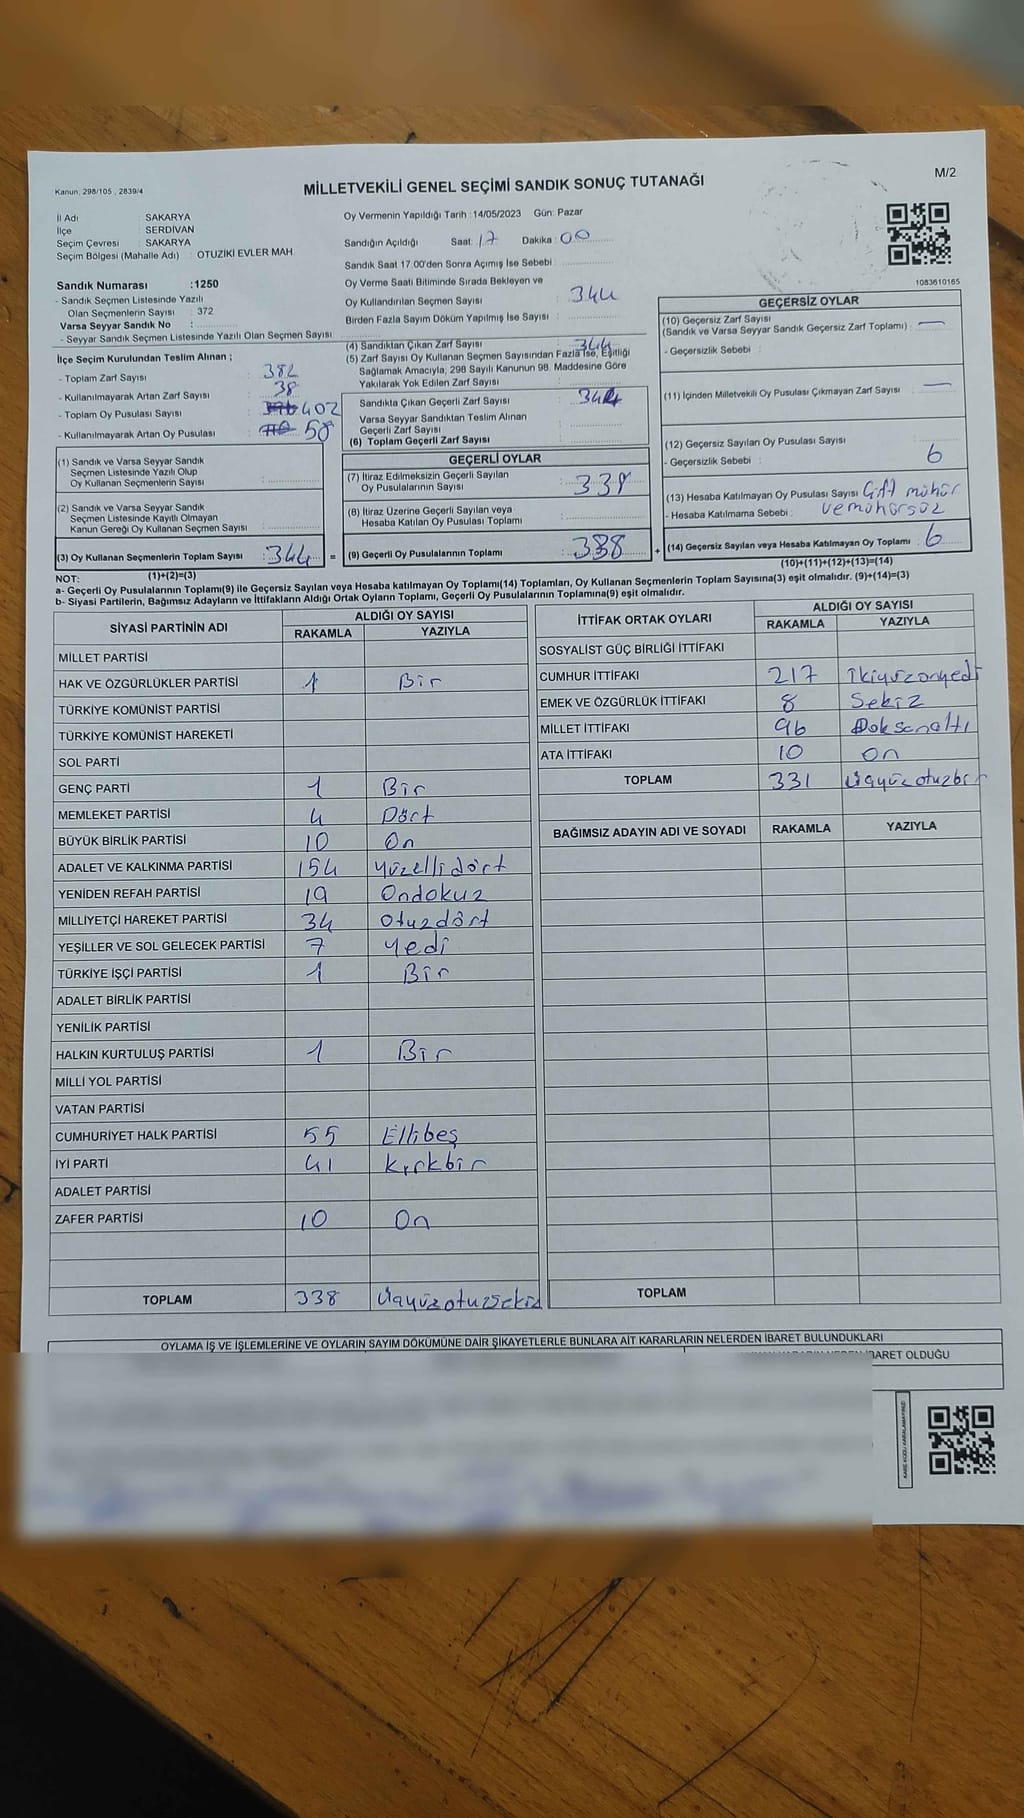 Kanun, 298/105 , 2839/4
MİLLETVEKİLİ GENEL SEÇİMİ SANDIK SONUÇ TUTANAĞI
M/2
İl Adı SAKARYA
İlçe SERDİVAN
Seçim Çevresi SAKARYA
Seçim Bölgesi (Mahalle Adı) : OTUZİKİ EVLER MAH
Sandık Numarası :1250
- Sandık Seçmen Listesinde Yazılı
Olan Seçmenlerin Sayısı : 372
Varsa Seyyar Sandık No :
- Seyyar Sandık Seçmen Listesinde Yazılı Olan Seçmen Sayısı
İlçe Seçim Kurulundan Teslim Alınan ;
- Toplam Zarf Sayısı : 382
- Kullanılmayarak Artan Zarf Sayısı : 38
- Toplam Oy Pusulası Sayısı : 402
- Kullanılmayarak Artan Oy Pusulası : 58
(1) Sandık ve Varsa Seyyar Sandık
Seçmen Listesinde Yazılı Olup
Oy Kullanan Seçmenlerin Sayısı :
(2) Sandık ve Varsa Seyyar Sandık
Seçmen Listesinde Kayıtlı Olmayan
Kanun Gereği Oy Kullanan Seçmen Sayısı
(3) Oy Kullanan Seçmenlerin Toplam Sayısı : 344 =
(1)+(2)=(3)
Oy Vermenin Yapıldığı Tarih :14/05/2023 Gün: Pazar
Sandığın Açıldığı Saat: 17 Dakika : 00
Sandık Saat 17.00'den Sonra Açılmış İse Sebebi :
Oy Verme Saati Bitiminde Sırada Bekleyen ve
Oy Kullandırılan Seçmen Sayısı : 344
Birden Fazla Sayım Döküm Yapılmış İse Sayısı :
(4) Sandıktan Çıkan Zarf Sayısı : 344
(5) Zarf Sayısı Oy Kullanan Seçmen Sayısından Fazla İse, Eşitliği
Sağlamak Amacıyla, 298 Sayılı Kanunun 98. Maddesine Göre
Yakılarak Yok Edilen Zarf Sayısı :
Sandıkta Çıkan Geçerli Zarf Sayısı : 344
Varsa Seyyar Sandıktan Teslim Alınan
Geçerli Zarf Sayısı
(6) Toplam Geçerli Zarf Sayısı
GEÇERLİ OYLAR
(7) İtiraz Edilmeksizin Geçerli Sayılan
Oy Pusulalarının Sayısı : 338
(8) İtiraz Üzerine Geçerli Sayılan veya
Hesaba Katılan Oy Pusulası Toplamı :
(9) Geçerli Oy Pusulalarının Toplamı : 338 +
1083610165
GEÇERSİZ OYLAR
(10) Geçersiz Zarf Sayısı
(Sandık ve Varsa Seyyar Sandık Geçersiz Zarf Toplamı) : —
- Geçersizlik Sebebi :
(11) İçinden Milletvekili Oy Pusulası Çıkmayan Zarf Sayısı : —
(12) Geçersiz Sayılan Oy Pusulası Sayısı :
- Geçersizlik Sebebi : 6
(13) Hesaba Katılmayan Oy Pusulası Sayısı Çift mühür
- Hesaba Katılmama Sebebi : ve mühürsüz
(14) Geçersiz Sayılan veya Hesaba Katılmayan Oy Toplamı : 6
(10)+(11)+(12)+(13)=(14)
NOT:
a- Geçerli Oy Pusulalarının Toplamı(9) ile Geçersiz Sayılan veya Hesaba katılmayan Oy Toplamı(14) Toplamları, Oy Kullanan Seçmenlerin Toplam Sayısına(3) eşit olmalıdır. (9)+(14)=(3)
b- Siyasi Partilerin, Bağımsız Adayların ve İttifakların Aldığı Ortak Oyların Toplamı, Geçerli Oy Pusulalarının Toplamına(9) eşit olmalıdır.
SİYASİ PARTİNİN ADI ALDIĞI OY SAYISI
RAKAMLA YAZIYLA
MİLLET PARTİSİ
HAK VE ÖZGÜRLÜKLER PARTİSİ 1 Bir
TÜRKİYE KOMÜNİST PARTİSİ
TÜRKİYE KOMÜNİST HAREKETİ
SOL PARTİ
GENÇ PARTİ 1 Bir
MEMLEKET PARTİSİ 4 Dört
BÜYÜK BİRLİK PARTİSİ 10 On
ADALET VE KALKINMA PARTİSİ 154 Yüzellidört
YENİDEN REFAH PARTİSİ 19 Ondokuz
MİLLİYETÇİ HAREKET PARTİSİ 34 Otuzdört
YEŞİLLER VE SOL GELECEK PARTİSİ 7 Yedi
TÜRKİYE İŞÇİ PARTİSİ 1 Bir
ADALET BİRLİK PARTİSİ
YENİLİK PARTİSİ
HALKIN KURTULUŞ PARTİSİ 1 Bir
MİLLİ YOL PARTİSİ
VATAN PARTİSİ
CUMHURİYET HALK PARTİSİ 55 Ellibeş
İYİ PARTİ 41 Kırkbir
ADALET PARTİSİ
ZAFER PARTİSİ 10 On
TOPLAM 338 Üçyüzotuzsekiz
İTTİFAK ORTAK OYLARI ALDIĞI OY SAYISI
RAKAMLA YAZIYLA
SOSYALİST GÜÇ BİRLİĞİ İTTİFAKI
CUMHUR İTTİFAKI 217 İkiyüzonyedi
EMEK VE ÖZGÜRLÜK İTTİFAKI 8 Sekiz
MİLLET İTTİFAKI 96 Doksanaltı
ATA İTTİFAKI 10 On
TOPLAM 331 Üçyüzotuzbir
BAĞIMSIZ ADAYIN ADI VE SOYADI RAKAMLA YAZIYLA
TOPLAM
OYLAMA İŞ VE İŞLEMLERİNE VE OYLARIN SAYIM DÖKÜMÜNE DAİR ŞİKAYETLERLE BUNLARA AİT KARARLARIN NELERDEN İBARET BULUNDUKLARI
İBARET OLDUĞU